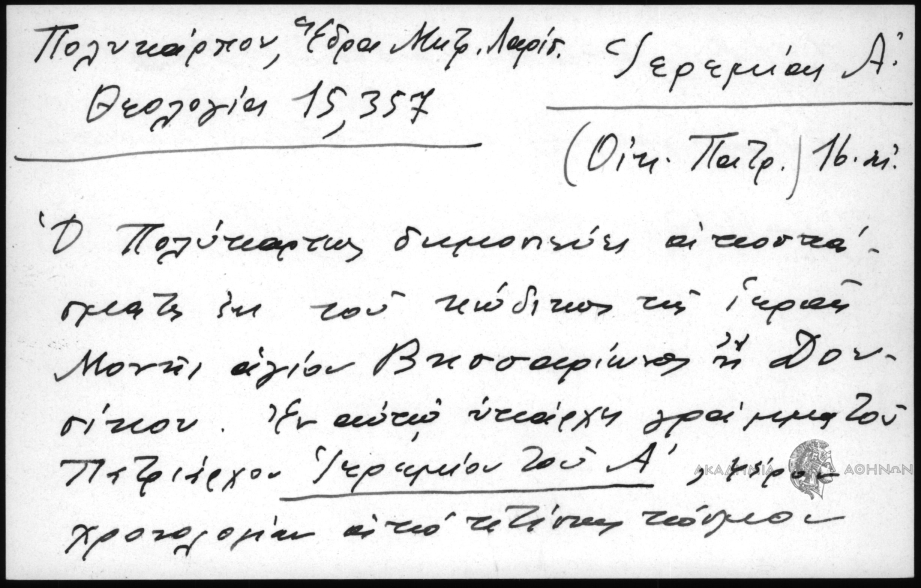 Πολυκάρπου, Ἕδρα Μητ. Λαρίσ.
Θεολογία 15,357
Ἱερεμίας Α΄.
(Οἰκ. Πατρ.) 16. αἰ.
Ὁ Πολύκαρπος δημοσιεύει ἀποσπά-
σματα ἐκ τοῦ κώδικος τῆς ἱερᾶς
Μονῆς ἁγίου Βησσαρίωνος ἢ Δου-
σίκου. Ἐν αὐτῷ ὑπάρχει γράμμα τοῦ
Πατριάρχου Ἱερεμίου τοῦ Α΄, φέρον
χρονολογίαν ἀπὸ κτίσεως κόσμου
ΑΚΑΔΗΜΙΑ ΑΘΗΝΩΝ